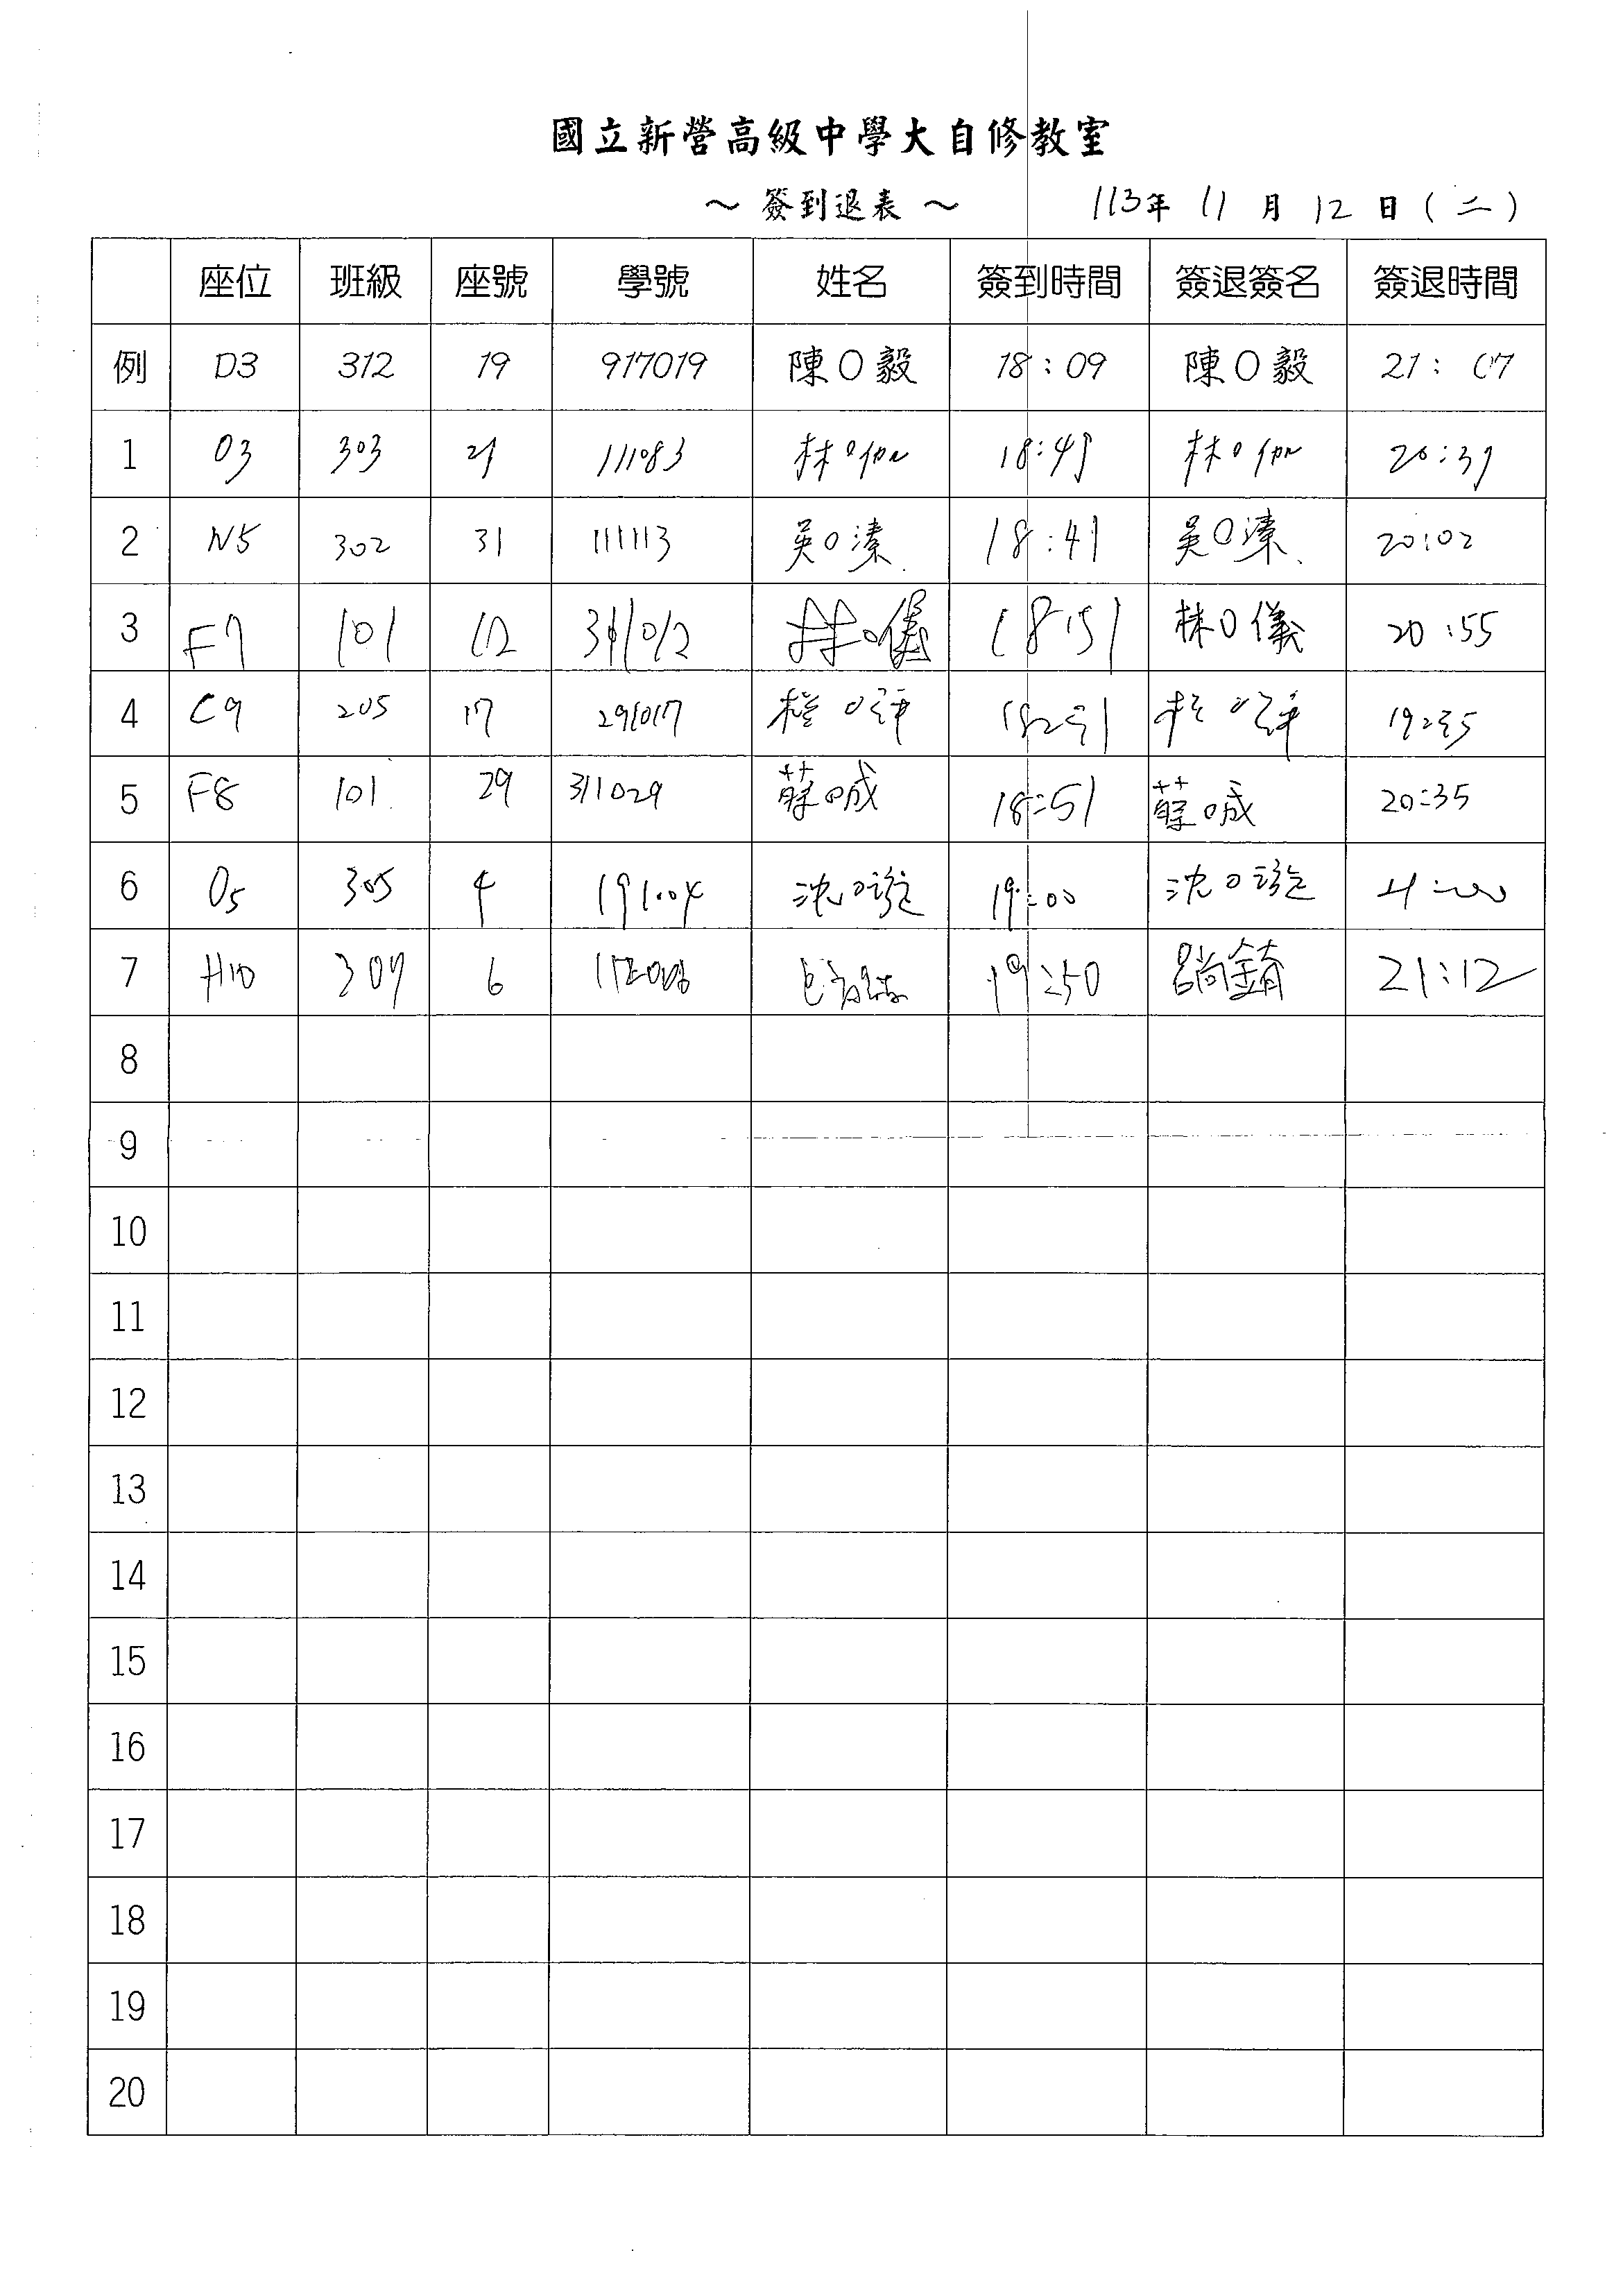 國立新營高級中學大自修教室
～ 簽到退表 ～ 113年 11 月 12 日 (二)
座位 班級 座號 學號 姓名 簽到時間 簽退簽名 簽退時間
例 D3 312 19 917019 陳O毅 18:09 陳O毅 21:07
1 03 303 111083 林O 18:49 林O
2 N5 302 31 111113 吳O溱 18:41 吳O溱 20:02
3 F7 101 12 311012 林O儀 18:51 林O儀 20:55
4 C9 205 17 291017
5 F8 101 29 311029 蔡O成 18:51 蔡O成 20:35
6 05 305 4 191004 沈O 19:00 沈O
7 H10 307 6 19:50 21:12
8
9
10
11
12
13
14
15
16
17
18
19
20